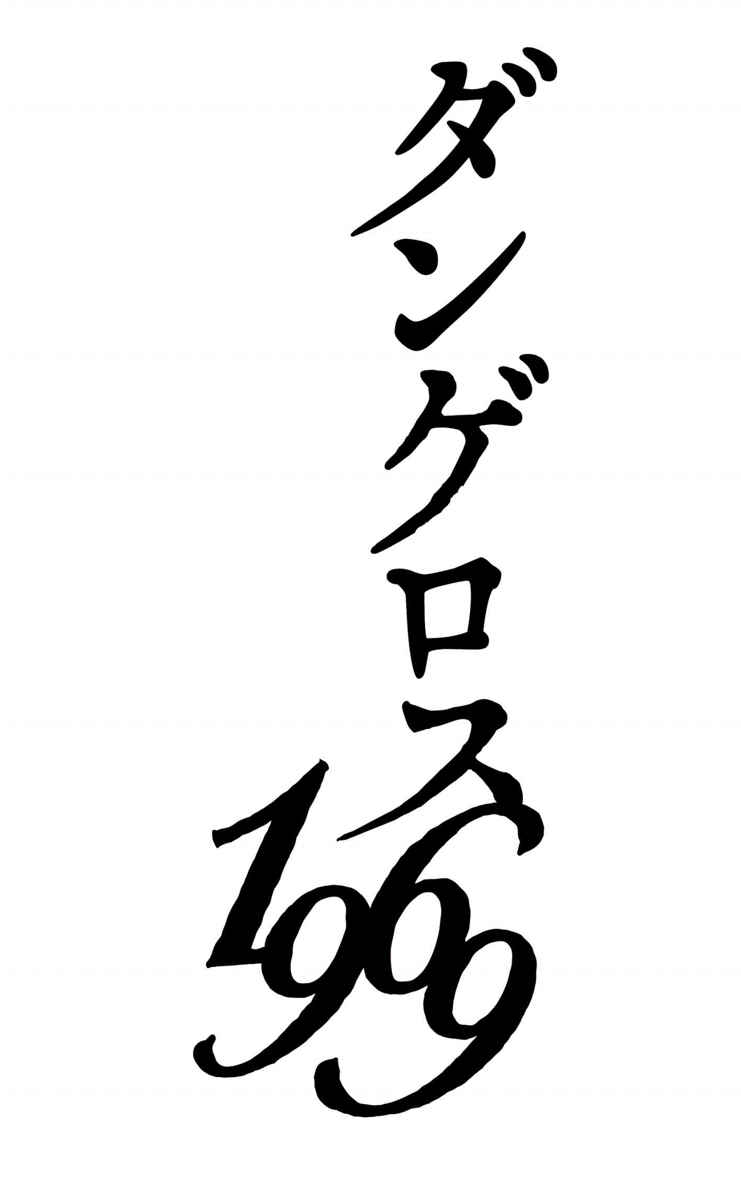 ダンゲロス
1969